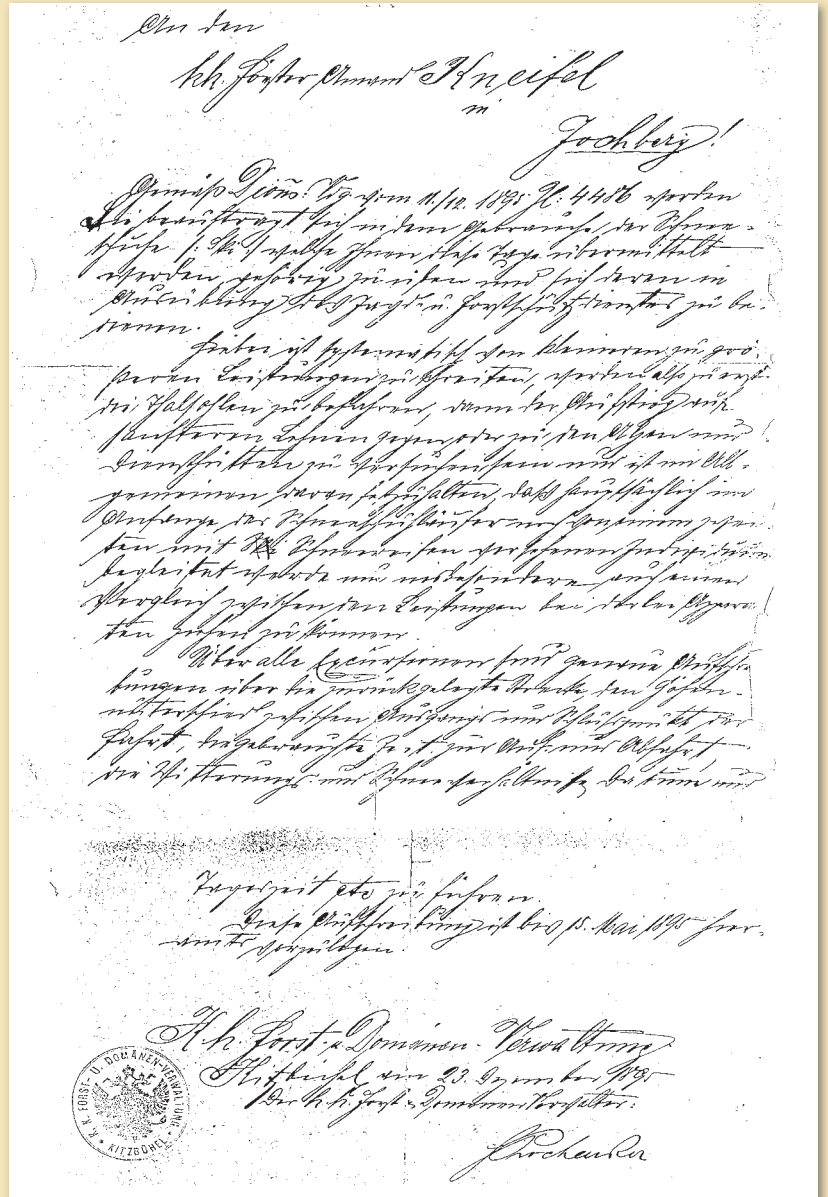 An den
kk. Förster Amand Kneifel
in
Jochberg!
Gemäß Dions: Vdg vom 11./12. 1895 Zl: 4486 werden
Sie beauftragt sich in dem Gebrauche der Schnee-
schuhe /: Ski :/ welche Ihnen diese Tage übermittelt
werden gehörig zu üben und sich deren in
Ausübung des Jagd- u. Forstschutzdienstes zu be-
dienen.
Hiebei ist systematisch von kleineren zu grö-
ßeren Leistungen zu schreiten, werden also zuerst
die Thalsohlen zu befahren, dann der Aufstieg auf
sanfteren Lehnen gegen oder zu den Alpen und
Diensthütten zu versuchen sein und ist im All-
gemeinen daran festzuhalten, daß hauptsächlich im
Anfange der Schneeschuhläufer noch von einem zwei-
ten mit Schneereifen versehenen Individuum
begleitet werde um insbesondere auch einen
Vergleich zwischen den Leistungen bei derlei Appara-
ten ziehen zu können.
Über alle Excursionen sind genaue Aufschrei-
bungen über die zurückgelegte Strecke, den Höhen-
unterschied zwischen Ausgangs und Schlußpunkt der
Fahrt, die gebrauchte Zeit zur Auf- und Abfahrt,
die Witterungs- und Schneeverhältnisse, Datum und
Tageszeit etc zu führen.
Diese Aufschreibung ist bis 15. Mai 1895 hier-
amts vorzulegen.
K. k. Forst- u. Domänen-Verwaltung
Kitzbichel am 23. Dezember 1895
Der k. k. Forst- u. Domänen Verwalter:
K. K. FORST- U. DOMÄNEN-VERWALTUNG
KITZBÜHEL